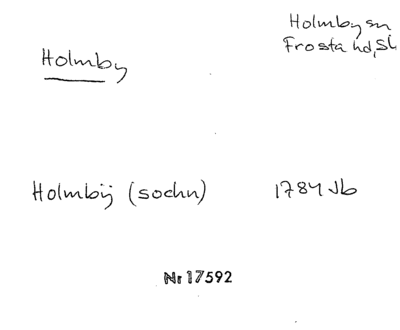 Holmby
Holmby sn
Frosta hd, Sk
Holmbÿ (sochn)
1784 Jb
Nr 17592